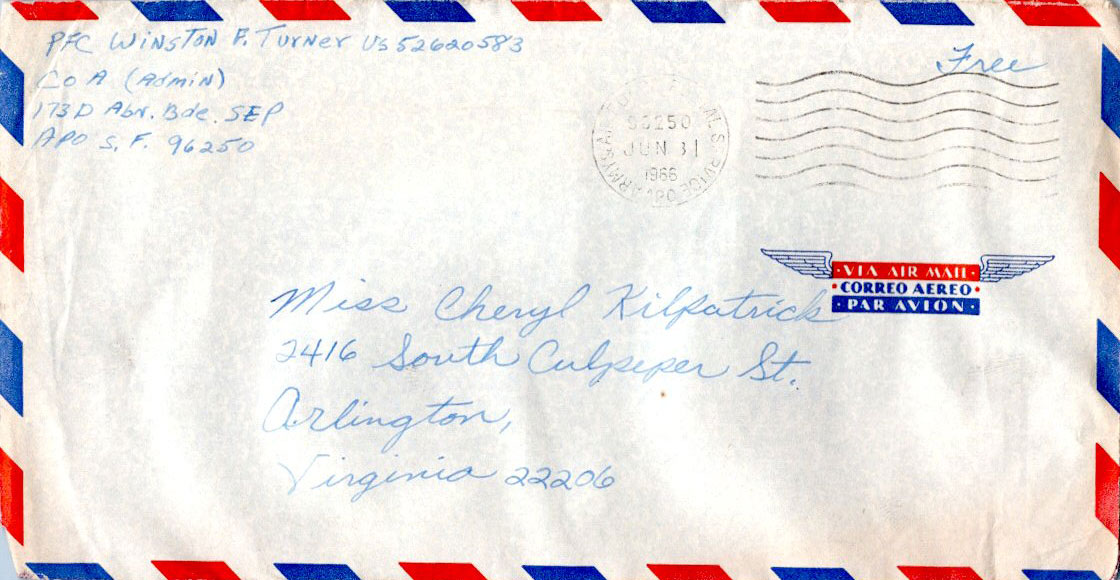 PFC Winston F. Turner US 52620583
Co A (Admin)
173D Abr. Bde. SEP
APO S. F. 96250
Free
96250
JUN 31
1966
VIA AIR MAIL
CORREO AEREO
PAR AVION
Miss Cheryl Kilpatrick
2416 South Culpeper St.
Arlington,
Virginia 22206